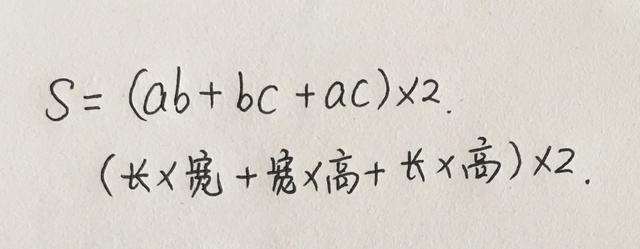 S=(ab+bc+ac)×2.
(长×宽+宽×高+长×高)×2.